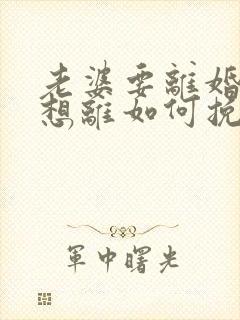 老婆要離婚
想離如何挽
軍中曙光